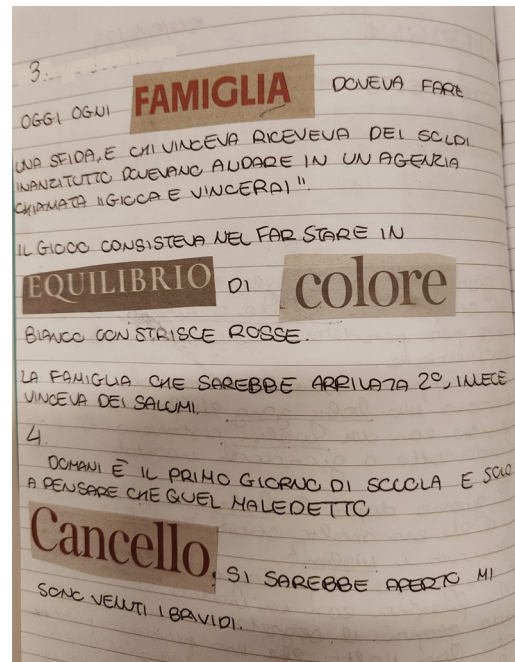 3.
OGGI OGNI FAMIGLIA DOVEVA FARE
UNA SFIDA, E CHI VINCEVA RICEVEVA DEI SOLDI
INANZITUTTO DOVEVANO ANDARE IN UN AGENZIA
CHIAMATA "GIOCA E VINCERAI".
IL GIOCO CONSISTEVA NEL FAR STARE IN
EQUILIBRIO DI colore
BIANCO CON STRISCE ROSSE.
LA FAMIGLIA CHE SAREBBE ARRIVATA 2°, INVECE
VINCEVA DEI SALUMI.
4.
DOMANI È IL PRIMO GIORNO DI SCUOLA E SOLO
A PENSARE CHE QUEL MALEDETTO
Cancello, SI SAREBBE APERTO MI
SONO VENUTI I BRIVIDI.